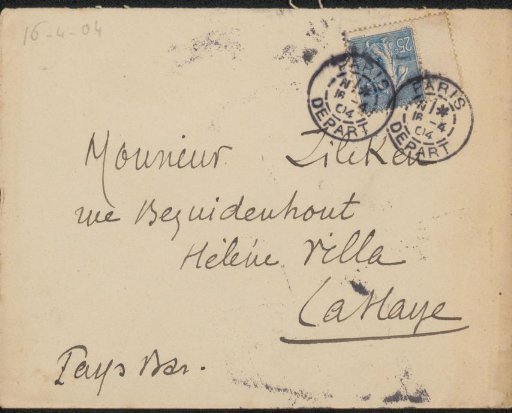 16-4-04
25c
PARIS
N1*
16-4
04
DEPART
PARIS
N1*
16-4
04
DEPART
Monsieur Zileken
rue Bezuidenhout
Hélène Villa
La Haye
Pays Bas.